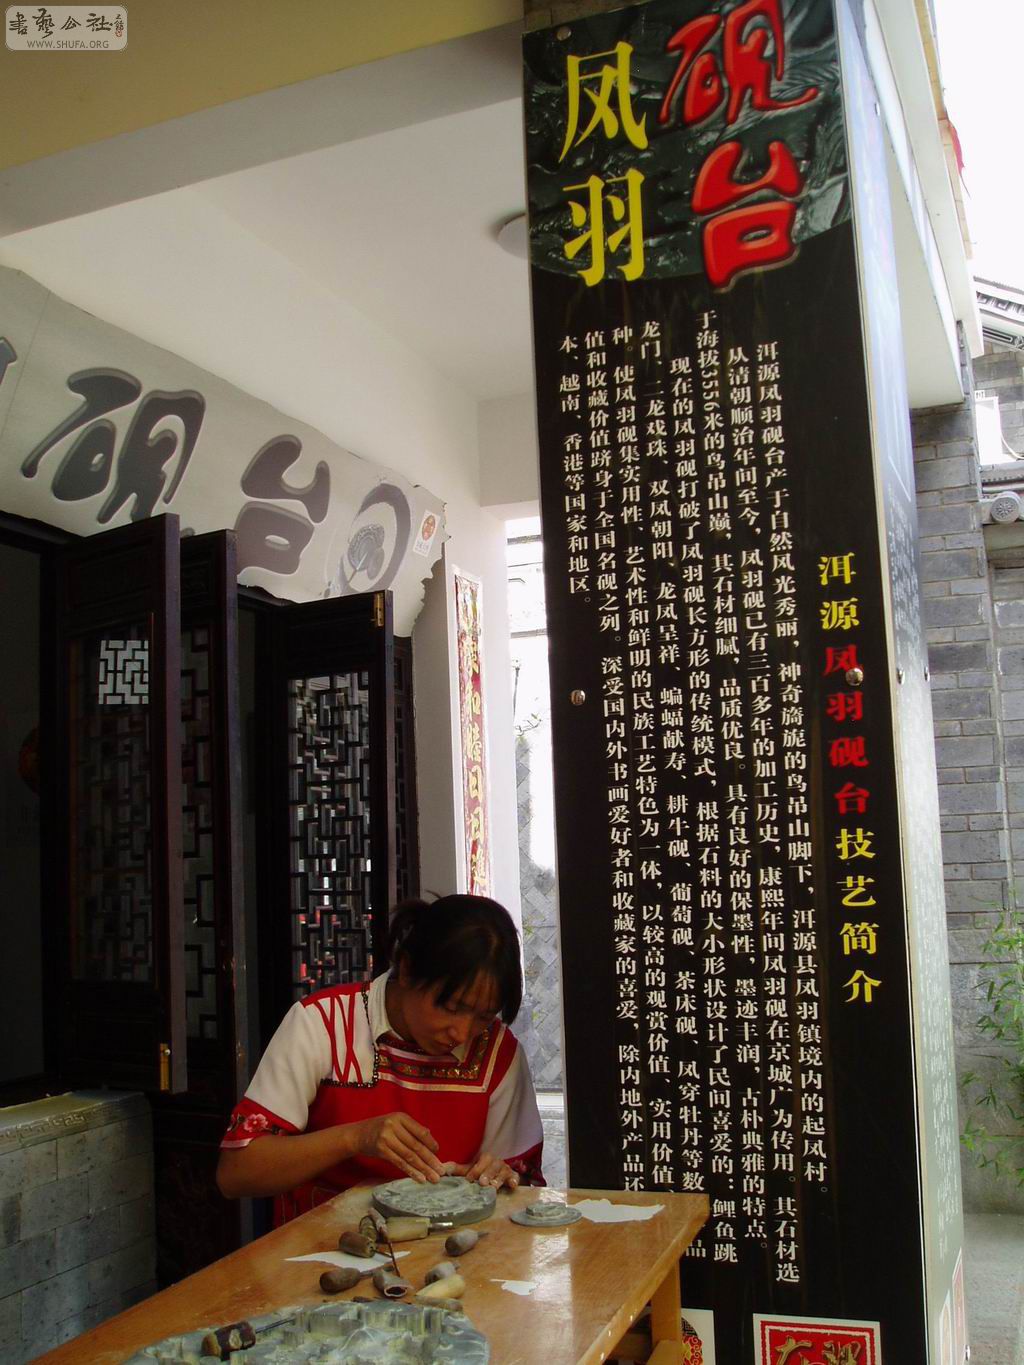 書藝公社
WWW.SHUFA.ORG
凤羽
砚台
砚台
洱源凤羽砚台技艺简介
洱源凤羽砚台产于自然风光秀丽，神奇旖旎的鸟吊山脚下，洱源县凤羽镇境内的起凤村。
从清朝顺治年间至今，凤羽砚已有三百多年的加工历史，康熙年间凤羽砚在京城广为传用。其石材选
于海拔3556米的鸟吊山巅，其石材细腻，品质优良。具有良好的保墨性，墨迹丰润，古朴典雅的特点。
现在的凤羽砚打破了凤羽砚长方形的传统模式，根据石料的大小形状设计了民间喜爱的：鲤鱼跳
龙门、二龙戏珠、双凤朝阳、龙凤呈祥、蝙蝠献寿、耕牛砚、葡萄砚、茶床砚、凤穿牡丹等数品
种。使凤羽砚集实用性、艺术性和鲜明的民族工艺特色为一体，以较高的观赏价值、实用价值、
值和收藏价值跻身于全国名砚之列。深受国内外书画爱好者和收藏家的喜爱，除内地外产品还
本、越南、香港等国家和地区。